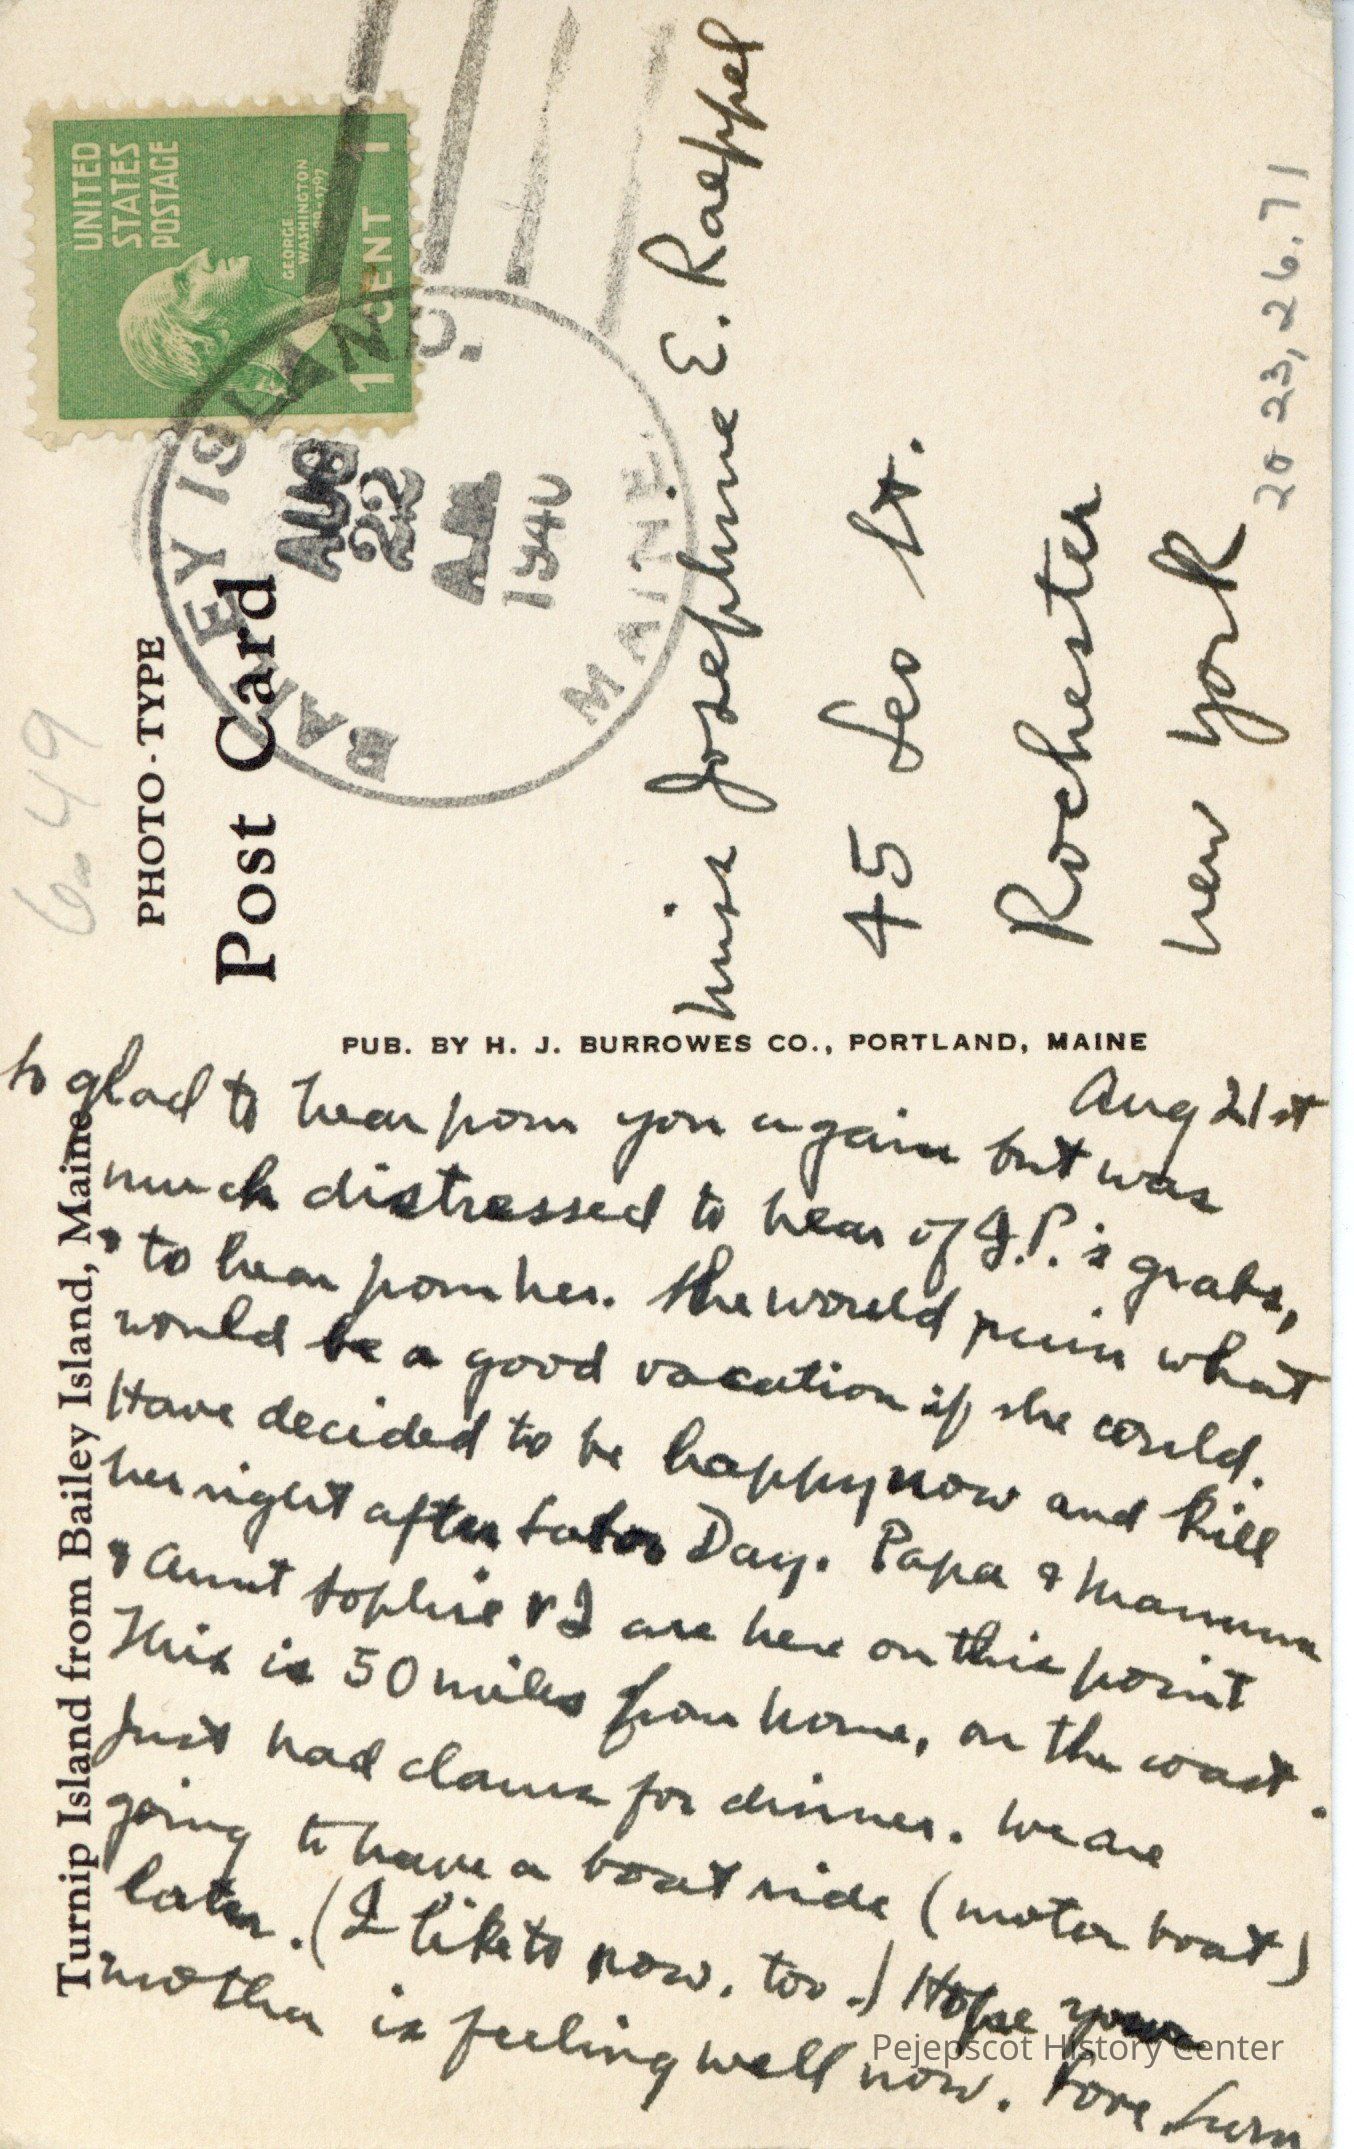 6-49
PHOTO-TYPE
Post Card
UNITED
STATES
POSTAGE
GEORGE
WASHINGTON
1 CENT 1
BAILEY ISLAND
AUG
22
AM
1940
MAINE
Miss Josephine E. Raeppel
45 Leo St.
Rochester
New York
2023.26.71
PUB. BY H. J. BURROWES CO., PORTLAND, MAINE
Turnip Island from Bailey Island, Maine
Aug 21st
So glad to hear from you again but was
much distressed to hear of J.P.'s grabs,
& to hear from her. She would ruin what
would be a good vacation if she could.
Have decided to be happy now and kill
her right after Labor Day. Papa & Mamma
& Aunt Sophie & I are here on this point
This is 50 miles from home, on the coast.
Just had clams for dinner. We are
going to have a boat ride (motor boat)
later. (I like to row, too.) Hope your
mother is feeling well now. Love,
Pejepscot History Center